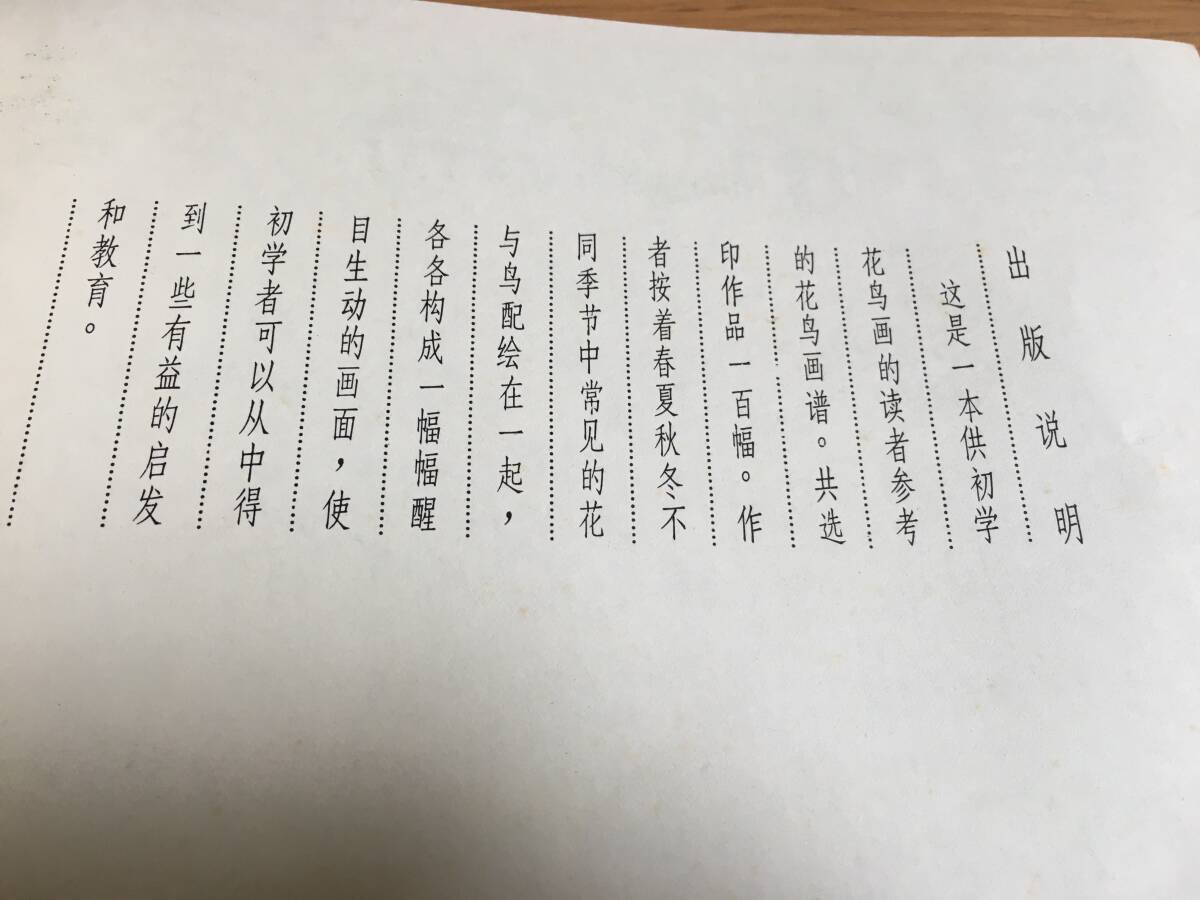 出版说明
这是一本供初学
花鸟画的读者参考
的花鸟画谱。共选
印作品一百幅。作
者按着春夏秋冬不
同季节中常见的花
与鸟配绘在一起，
各各构成一幅幅醒
目生动的画面，使
初学者可以从中得
到一些有益的启发
和教育。